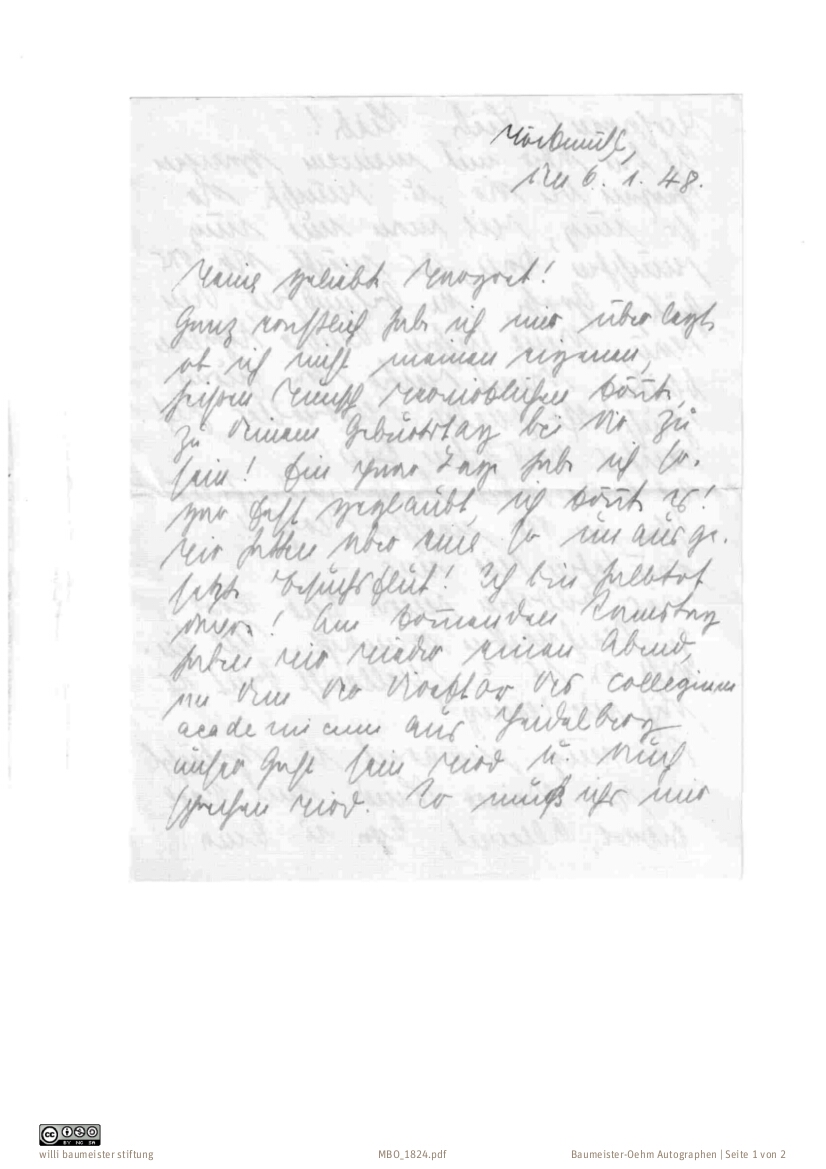 Möckmühl,
den 6. 1. 48.
Meine geliebte Margret!
Ganz ernstlich hab ich mir überlegt,
ob ich nicht meinen eigenen,
heißen Wunsch verwirklichen könnte,
zu Deinem Geburtstag bei Dir zu
sein! Ein paar Tage hab ich so-
gar fast geglaubt, ich könnte es!
Wir hatten aber eine so unausge-
setzte Besuchsflut! Ich bin halbtot
davon! Am kommenden Samstag
haben wir wieder einen Abend,
an dem der Direktor des collegium
academicum aus Heidelberg
unser Gast sein wird u. auch
sprechen wird. So muß ich's mir
willi baumeister stiftung
MBO_1824.pdf
Baumeister-Oehm Autographen | Seite 1 von 2